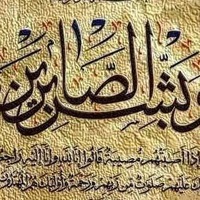 وَبَشِّرِ الصَّابِرِينَ
إِذَا أَصَابَتْهُم مُّصِيبَةٌ قَالُوا إِنَّا لِلَّهِ وَإِنَّا إِلَيْهِ
عَلَيْهِمْ صَلَوَاتٌ مِّن رَّبِّهِمْ وَرَحْمَةٌ وَأُولَٰئِكَ هُمُ